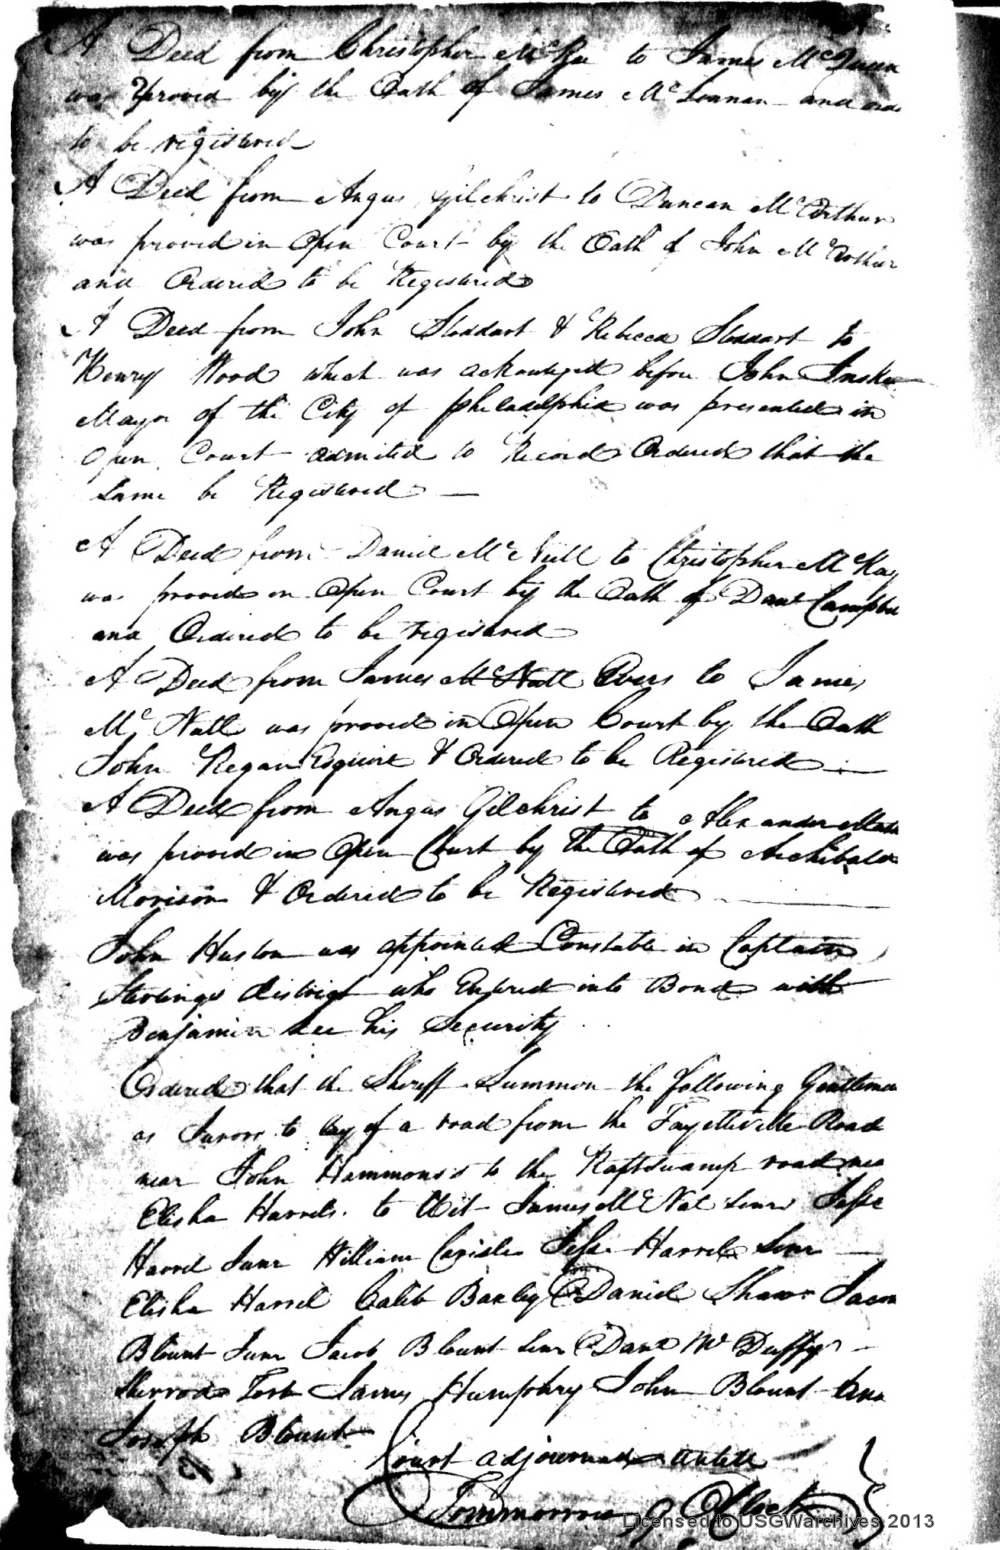 A Deed from Christopher McRae to James McQueen
was proved by the Oath of James McLennan and
to be registered
A Deed from Angus Gilchrist to Duncan McArthur
was proved in Open Court by the Oath of John McArthur
and Ordered to be Registered
A Deed from John Stoddart & Rebecca Stoddart to
Henry Wood which was acknowleged before John Inskee
Mayor of the City of Philadelphia was presented in
Open Court admited to Record Ordered that the
same be Registered
A Deed from Daniel McNeill to Christopher McKay
was proved in Open Court by the Oath of Danl Campbe
and Ordered to be registered
A Deed from James McNatt Overs to James
McNatt was proved in Open Court by the Oath
John Regan Esquire & Ordered to be Registered
A Deed from Angus Gilchrist to Alexander
was proved in Open Court by the Oath of Archibald
Morison & Ordered to be Registered
John Huston was appointed Constable in Captain
Sterlings district who Entered into Bond with
Benjamin Lee his Security
Ordered that the Sheriff Summon the following Gentlemen
as Jurors to lay of a road from the Fayetteville Road
near John Hammons's to the Raftswamp road nea
Elisha Harrels. to Wit James McNat Senr Jesse
Harrel Junr William Carisle Jesse Harrel Senr
Elisha Harrel Caleb Baxley Daniel Shaw Jacob
Blount Junr Jacob Blount Senr Danl McDuffy
Sherrod James Humphry John Blount and
Joseph Blount
Court adjourned untill
Tommorrow 9 OClock
Licensed to USGWarchives 2013